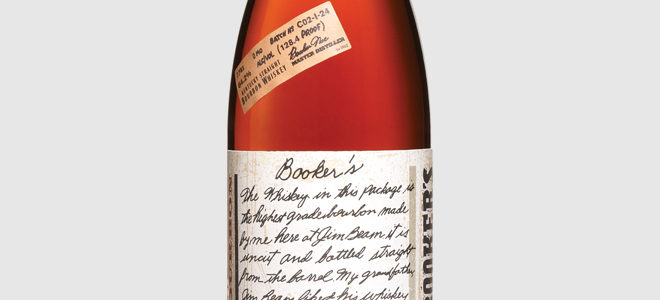 7 YRS 0 MO BATCH № C02-I-24
64.2% ALC/VOL (128.4 PROOF)
KENTUCKY STRAIGHT
BOURBON WHISKEY
Booker Noe
MASTER DISTILLER
Booker's
The Whiskey in this package is
the highest grade bourbon made
by me here at Jim Beam it is
uncut and bottled straight
from the barrel. My grandfather,
Jim Beam
his whiskey
BOOKER'S